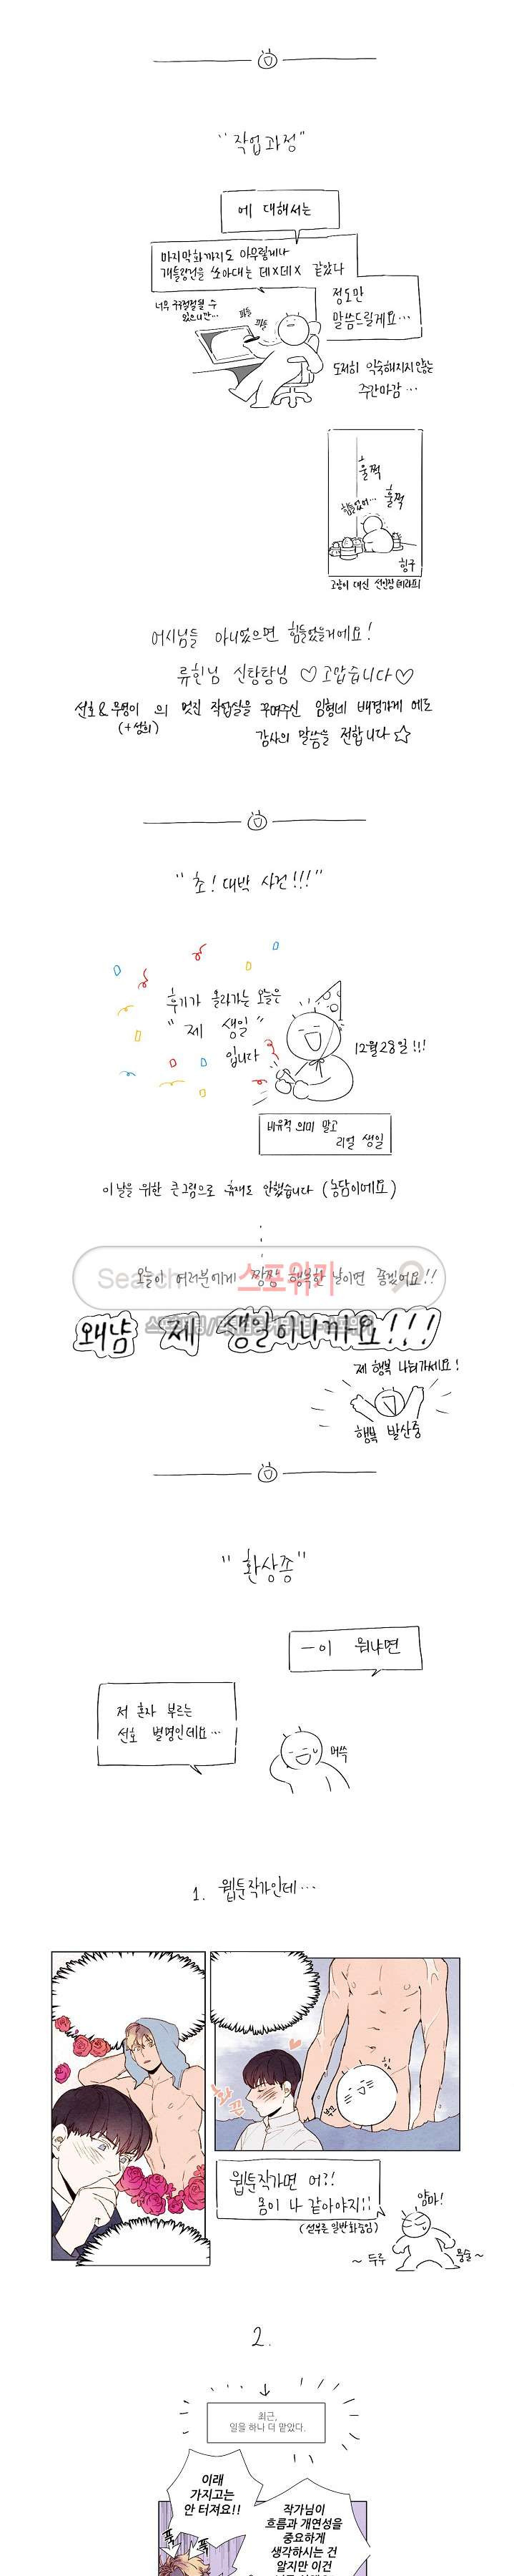 "작업과정"
에 대해서는
마지막화까지도 아무렇게나
개틀링건을 쏘아대는 데X데X 같았다
정도만
말씀드릴게요...
너무 구구절절될 수
있으니깐...
도저히 익숙해지지않는
주간마감...
훌쩍
훌쩍
힘들었어...
힝구
고양이 대신 선인장 (테라피)
어시님들 아니었으면 힘들었을거에요!
류힌님 신탕탕님 ♡고맙습니다♡
선호&무영이 의 멋진 작업실을 꾸며주신 임형네 배경가게 에도
(+성희)
감사의 말씀을 전합니다☆
"초! 대박 사건!!!"
후기가 올라가는 오늘은
"제 생일"
입니다
12월28일!!!
비유적 의미 말고
리얼 생일
이날을 위한 큰그림으로 휴재도 안했습니다 (농담이에요)
Search
스포위키
오늘이 여러분에게 짱짱 행복한 날이면 좋겠어요!!
왜냠 제 생일이니까요!!!
제 행복 나눠가세요!
행복 발산중
"환상종"
ㅡ이 뭐냐면
저 혼자 부르는
선호 별명인데요...
머쓱
1. 웹툰작가인데...
화끈
웹툰작가면 어?!
몸이 나 같아야지!!
(섣부른 일반화중임)
얌마!
~두루
뭉술~
2.
최근,
일을 하나 더 맡았다.
이래
가지고는
안 터져요!!
작가님이
흐름과 개연성을
중요하게
생각하시는 건
알지만 이건